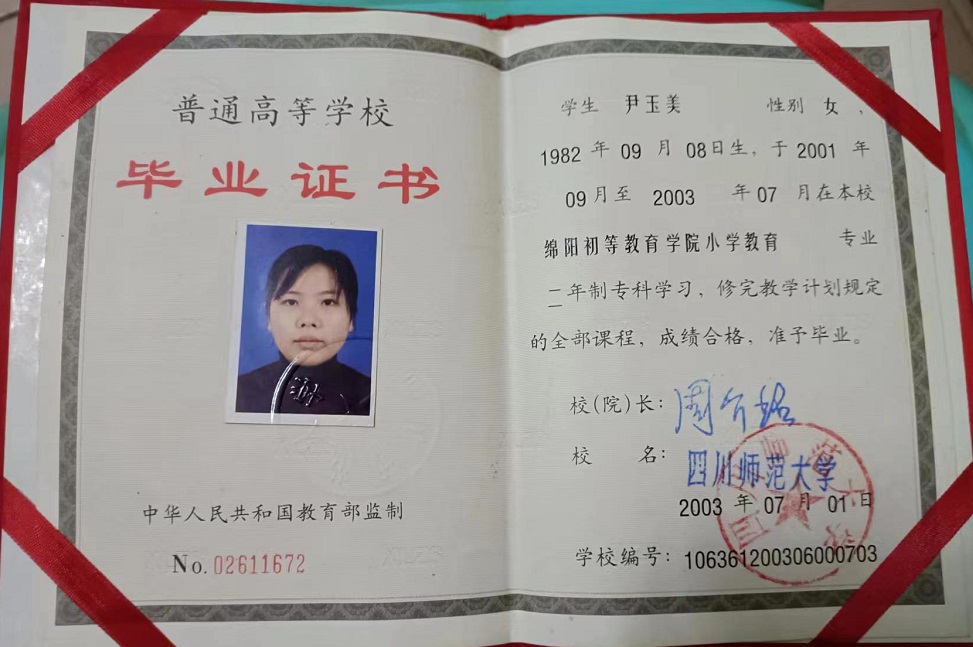 普通高等学校
毕业证书
中华人民共和国教育部监制
No. 02611672
学生 尹玉美 性别 女，
1982 年 09 月 08日生，于 2001 年
09月至 2003 年 07 月在本校
绵阳初等教育学院小学教育 专业
二年制专科学习，修完教学计划规定
的全部课程，成绩合格，准予毕业。
校(院)长：周介铭
校 名：四川师范大学
2003 年 07 月 01 日
学校编号：106361200306000703